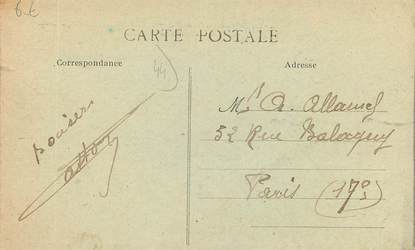 6 €
CARTE POSTALE
Correspondance
44
Adresse
Mr A. Allamel
52 Rue Balagny
Paris (17e)